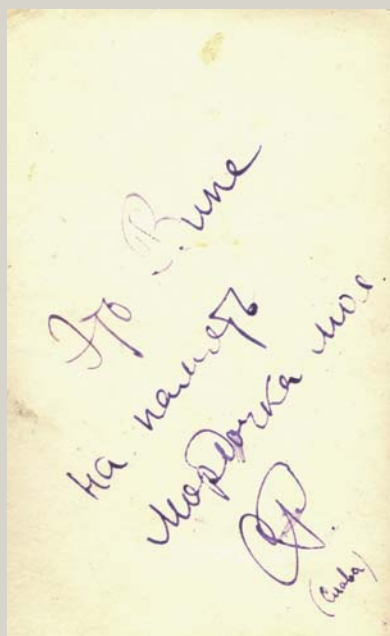 Это Вите
на память
мордочка моя
СР.
(Слава)